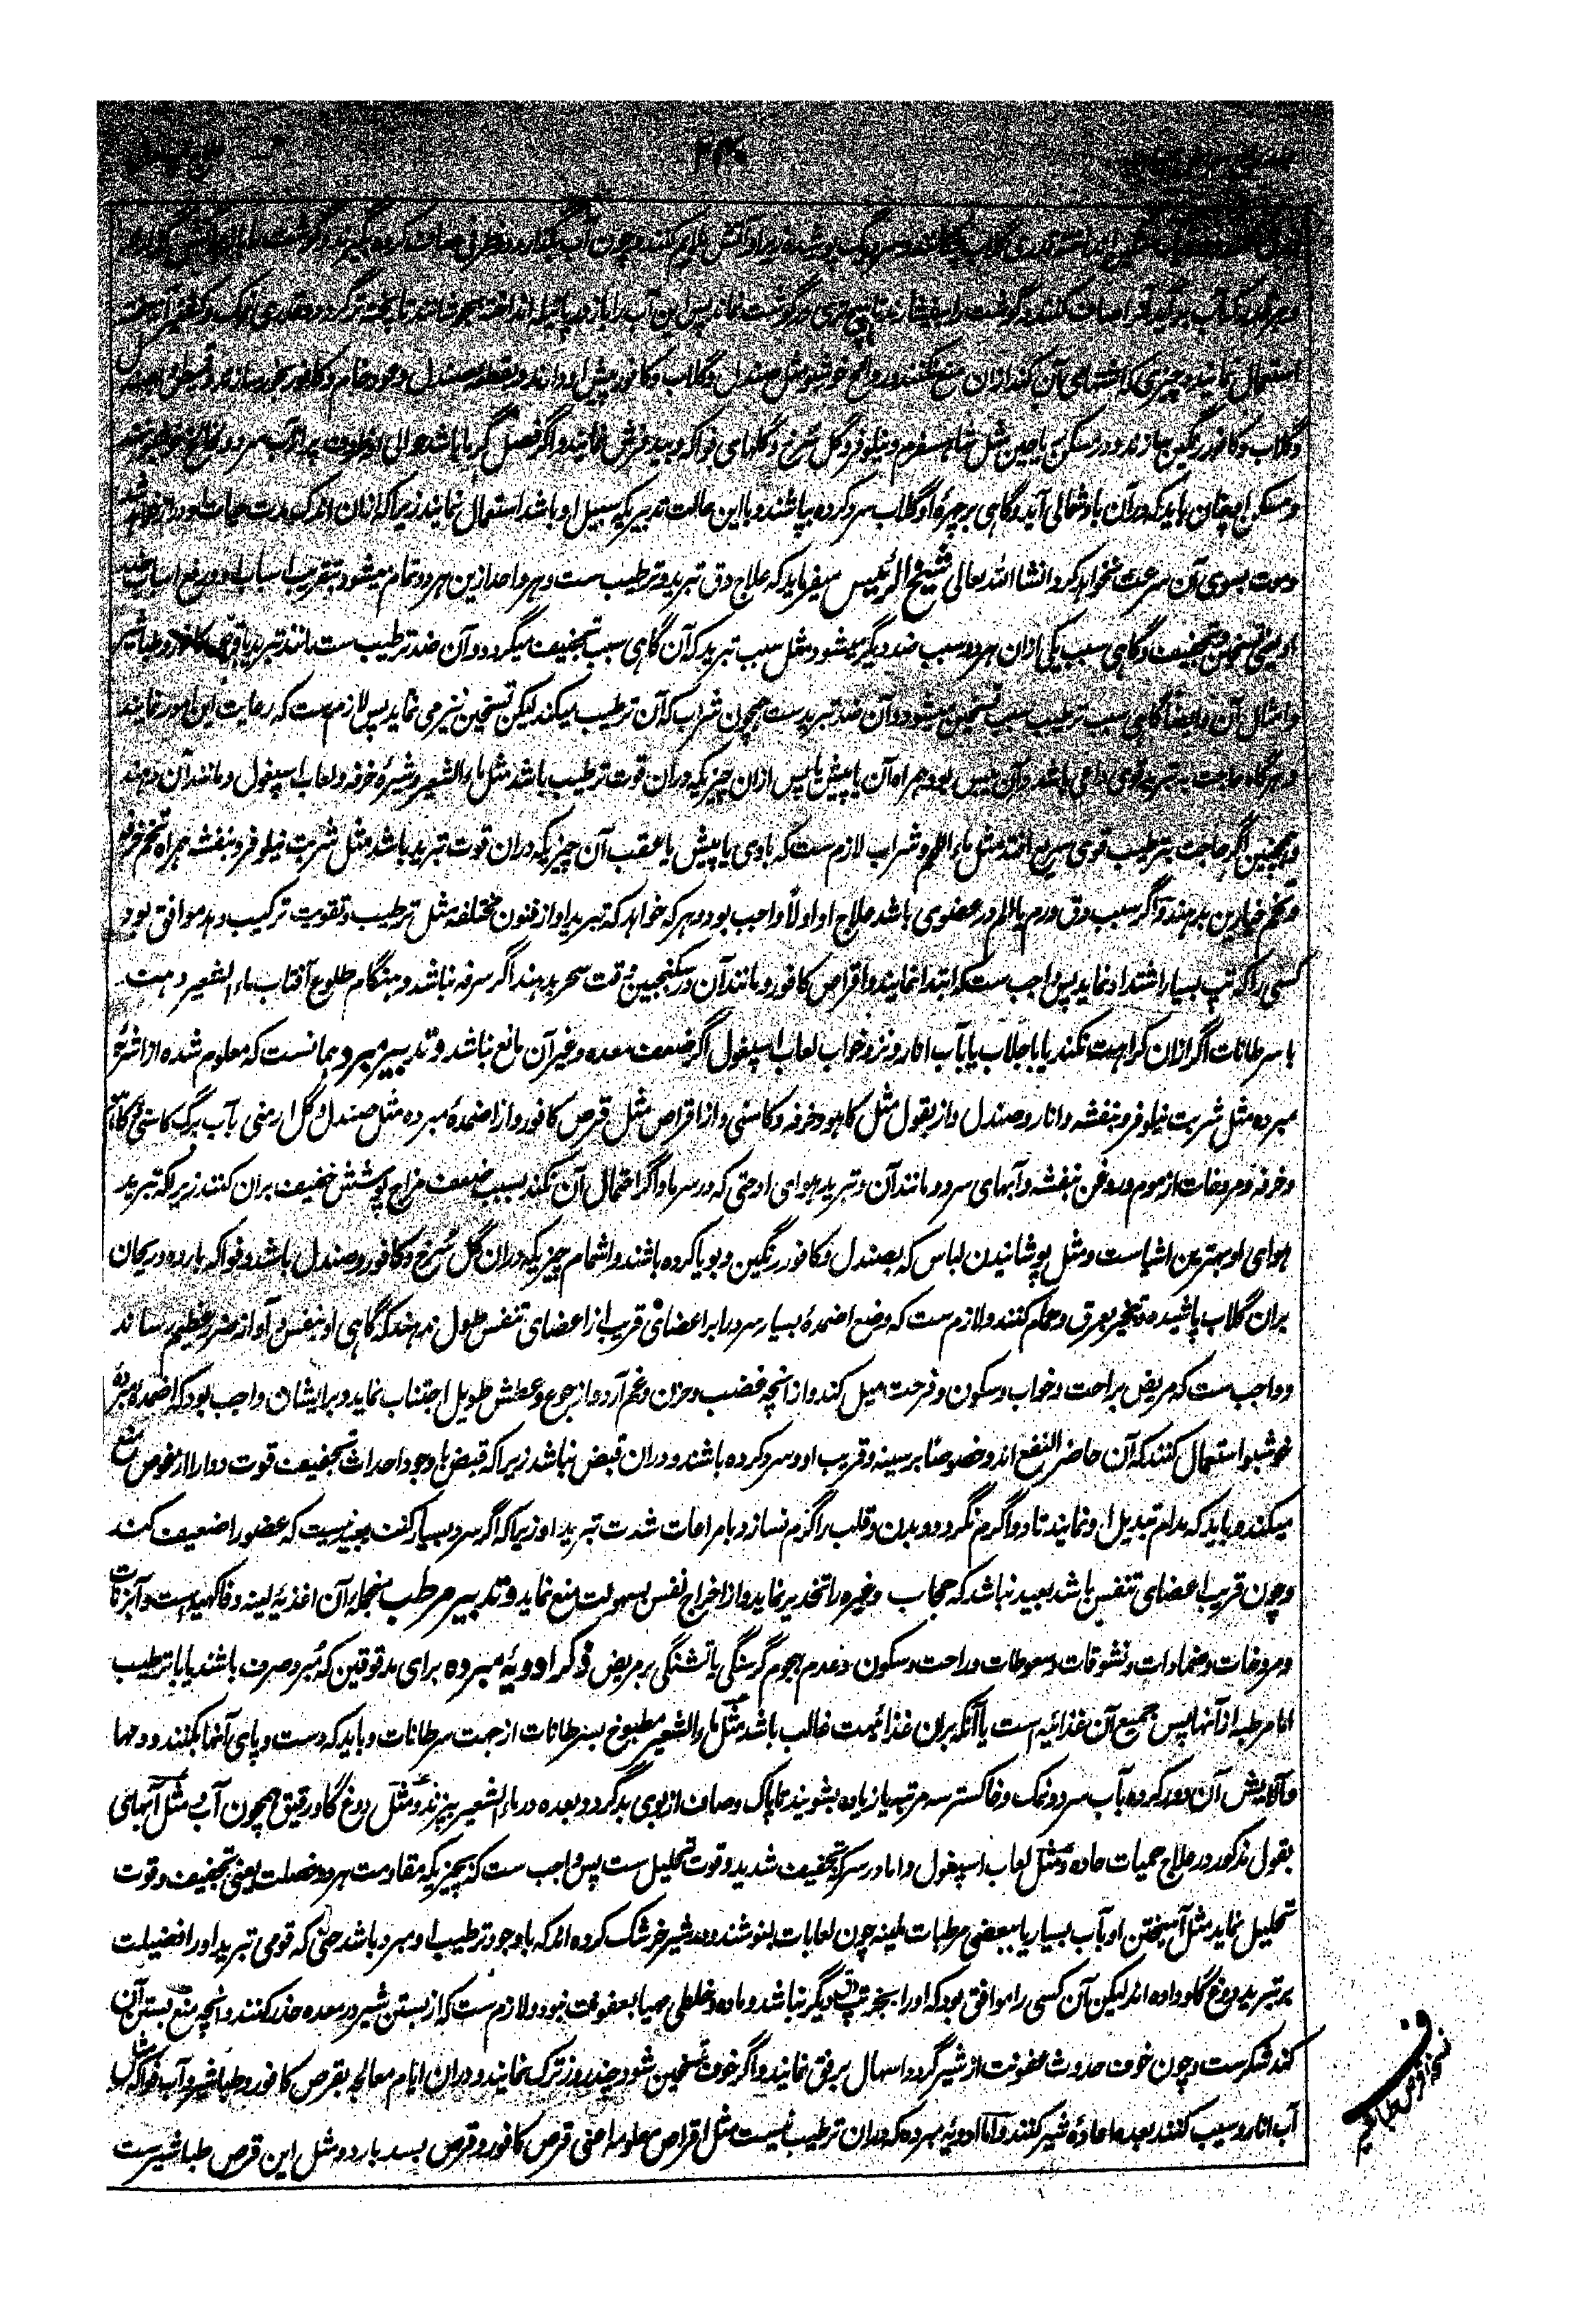 ۲۴۰
استعمال نمایند و چیزی که اشتهای آن کند ازان منع نکنند و روائح خوشبو مثل صندل و گلاب و کافور پیش او دارند
و گلاب و کافور رنگین سازند و در مسکن ریاحین مثل شاهسفرم و نیلوفر و گل سرخ و گلهای فواکه و بید فرش نمایند و اگر فصل گرما باشد حوالی او ظروف پر از آب سرد
و مسکن او چنان باید که دران باد شمالی آید و گاهی بر چهرهٔ او گلاب سرد کرده بپاشند و با این حالت تدبیریکه سبیل او باشد استعمال نمایند زیراکه
و موت بسوی آن سرعت نخواهد کرد انشاء الله تعالی شیخ الرئیس میفرماید که علاج دق تبرید و ترطیب ست و هر واحد ازین هر دو تمام میشود بتقریب اسباب او و رفع اسباب ضد
او یعنی تسخین و تجفیف و گاهی سبب یکی ازان هر دو سبب ضد دیگر میشود مثل سبب تبرید که آن گاهی سبب تجفیف میگردد و آن ضد ترطیب ست مانند تبرید باقراص کافور و طباشیر
و امثال آن و ایضاً گاهی سبب ترطیب سبب تسخین میشود و آن ضد تبرید ست همچون شراب که آن ترطیب میکند لیکن تسخین نیز می نماید پس لازم ست که رعایت این امور نمایند
و هرگاه حاجت به تبرید قوی داعی باشد و آن میبس بود همراه آن یا پیش یا پس ازان چیزیکه دران قوت ترطیب باشد مثل ماء الشعیر و شیرهٔ خرفه و لعاب اسپغول و مانند آن دهند
و همچنین اگر حاجت بترطیب قوی سریع افتد مثل ماء اللحم و شراب لازم ست که با وی یا پیش یا عقب آن چیزیکه دران قوت تبرید باشد مثل شربت نیلوفر و بنفشه همراه تخم خرفه
و تخم خیارین بدهند و اگر سبب دق ورم یا الم در عضوی باشد علاج او اولاً واجب بود و هر که خواهد که تبرید او از فنون مختلفه مثل ترطیب و تقویت ترکیب دهد موافق بود
کسی را که تپ بسیار اشتداد نماید پس واجب ست که ابتدا نمایند و اقراص کافور و مانند آن در سکنجبین وقت سحر بدهند اگر سرفه نباشد و هنگام طلوع آفتاب ماء الشعیر دهند
با سرطانات اگر ازان کراهت نکند یا با جلاب یا بآب انار و نزد خواب لعاب اسپغول اگر ضعف معده و غیر آن مانع نباشد و تدبیر مبرد همانست که معلوم شده از اشربهٔ
مبرده مثل شربت نیلوفر و بنفشه و انار و صندل و از بقول مثل کاهو و خرفه و کاسنی و از اقراص مثل قرص کافور و از اضمدهٔ مبرده مثل صندل و گل ارمنی بآب برگ کاسنی و کاهو
و خرفه و مروخات از موم و روغن بنفشه و آبهای سرد و مانند آن و تبرید هوای او حتی که در سرما و اگر احتمال آن نکند بسبب ضعف مزاج پوشش خفیف بران کنند زیراکه تبرید
هوای او بهترین اشیاست و مثل پوشانیدن لباس که بصندل و کافور رنگین و بویا کرده باشند و اشمام چیزیکه دران گل سرخ و کافور و صندل باشد و فواکه بارده و ریحان
بران گلاب پاشیده و لازم ست که وضع اضمدهٔ بسیار سرد را بر اعضای قریب از اعضای تنفس طول ندهند که گاهی او بنفس و آواز ضرر عظیم رساند
و واجب ست که مریض براحت و خواب و سکون و فرحت میل کند و از انچه غضب و حزن و غم آرد و از جوع و عطش طویل اجتناب نماید و برایشان واجب بود که اضمدهٔ مبرده
خوشبو استعمال کنند که آن حاضر النفع اند و خصوصاً بر سینه و قریب او و سرد کرده باشند و دران قبض نباشد زیراکه قبض با وجود احداث تجفیف قوت دوا را از غوص منع
میکند و باید که مدام تبدیل او نمایند تا دوا گرم نگردد و بدن و قلب را گرم نسازد با مراعات شدت تبرید او زیراکه اگر سرد بسیار کنند بعید نیست که عضو را ضعیف کند
و چون قریب اعضای تنفس باشد بعید نباشد که حجاب و غیره را تخدیر نماید و از اخراج نفس بسهولت منع نماید و تدبیر مرطب منجمله آن اغذیه لینه و فاکهیه است و آبزنات
و مروخات و ضمادات و نشوقات و سعوطات و راحت و سکون و عدم هجوم گرسنگی یا تشنگی بر مریض ذکر ادویهٔ مبرده برای مدقوقین که مبرد صرف باشند یا با ترطیب
اما مرطبه از آنها پس جمیع آن غذائیه است یا آنکه بران غذائیت غالب باشد مثل ماء الشعیر مطبوخ بسرطانات از جهت سرطانات و باید که دست و پای آنها بکنند و دمها
و آلایش آن دور کرده بآب سرد و نمک و خاکستر سه مرتبه یا زیاده بشویند تا پاک و صاف از بوی بد گردد و بعده در ماء الشعیر بپزند و مثل دوغ گاو رقیق همچون آب و مثل آبهای
بقول مذکور در علاج حمیات حاده و مثل لعاب اسپغول و اما در سرکه تجفیف شدید و قوت تحلیل ست پس واجب ست که بچیزیکه مقاومت هر دو خصلت یعنی تجفیف و قوت
تحلیل نماید مثل آمیختن او بآب بسیار یا ببعضی مرطبات لینه چون لعابات بنوشند و مدح شیر خر شک کرده اند که با وجود ترطیب او مبرد باشد حتی که قومی تبرید او را افضیلت
بر تبرید دوغ گاو داده اند لیکن آن کسی را موافق بود که او را بجز تپ دق تپ دیگر نباشد و ماده و خلطی مهیا بعفونت نبود و لازم ست که از بستن شیر در معده حذر کنند و انچه منع بستن آن
کند شکر ست و چون خوف حدوث عفونت از شیر گردد اسهال برفق نمایند و اگر خوف تسخین شود چند روز ترک نمایند و دران ایام معالجه بقرص کافور و طباشیر و آب فواکه مثل
آب انار و سیب کنند بعده اعادهٔ شیر کنند و اما ادویهٔ مبرده که دران ترطیب نیست مثل اقراص معلومه اعنی قرص کافور و قرص بسد بارد و مثل این قرص طباشیر ست
نسخه قرص طباشیر